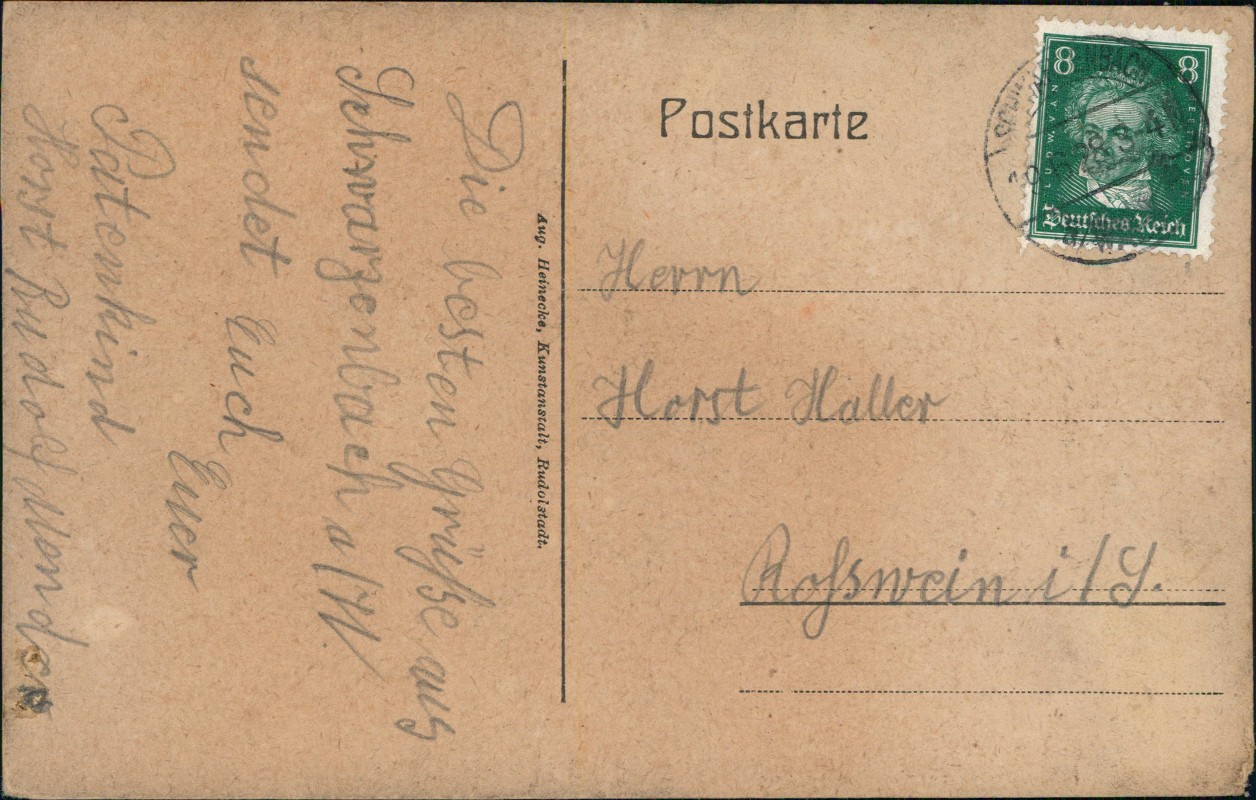 Die besten Grüße aus
Schwarzenbach a/W.
sendet Euch
Euer
Patenkind
Horst Rudolf
Aug. Heinecke, Kunstanstalt, Rudolstadt.
Postkarte
8 8
LUDWIG VAN BEETHOVEN
Deutsches Reich
Herrn
Horst Haller
Roſswein i/S.